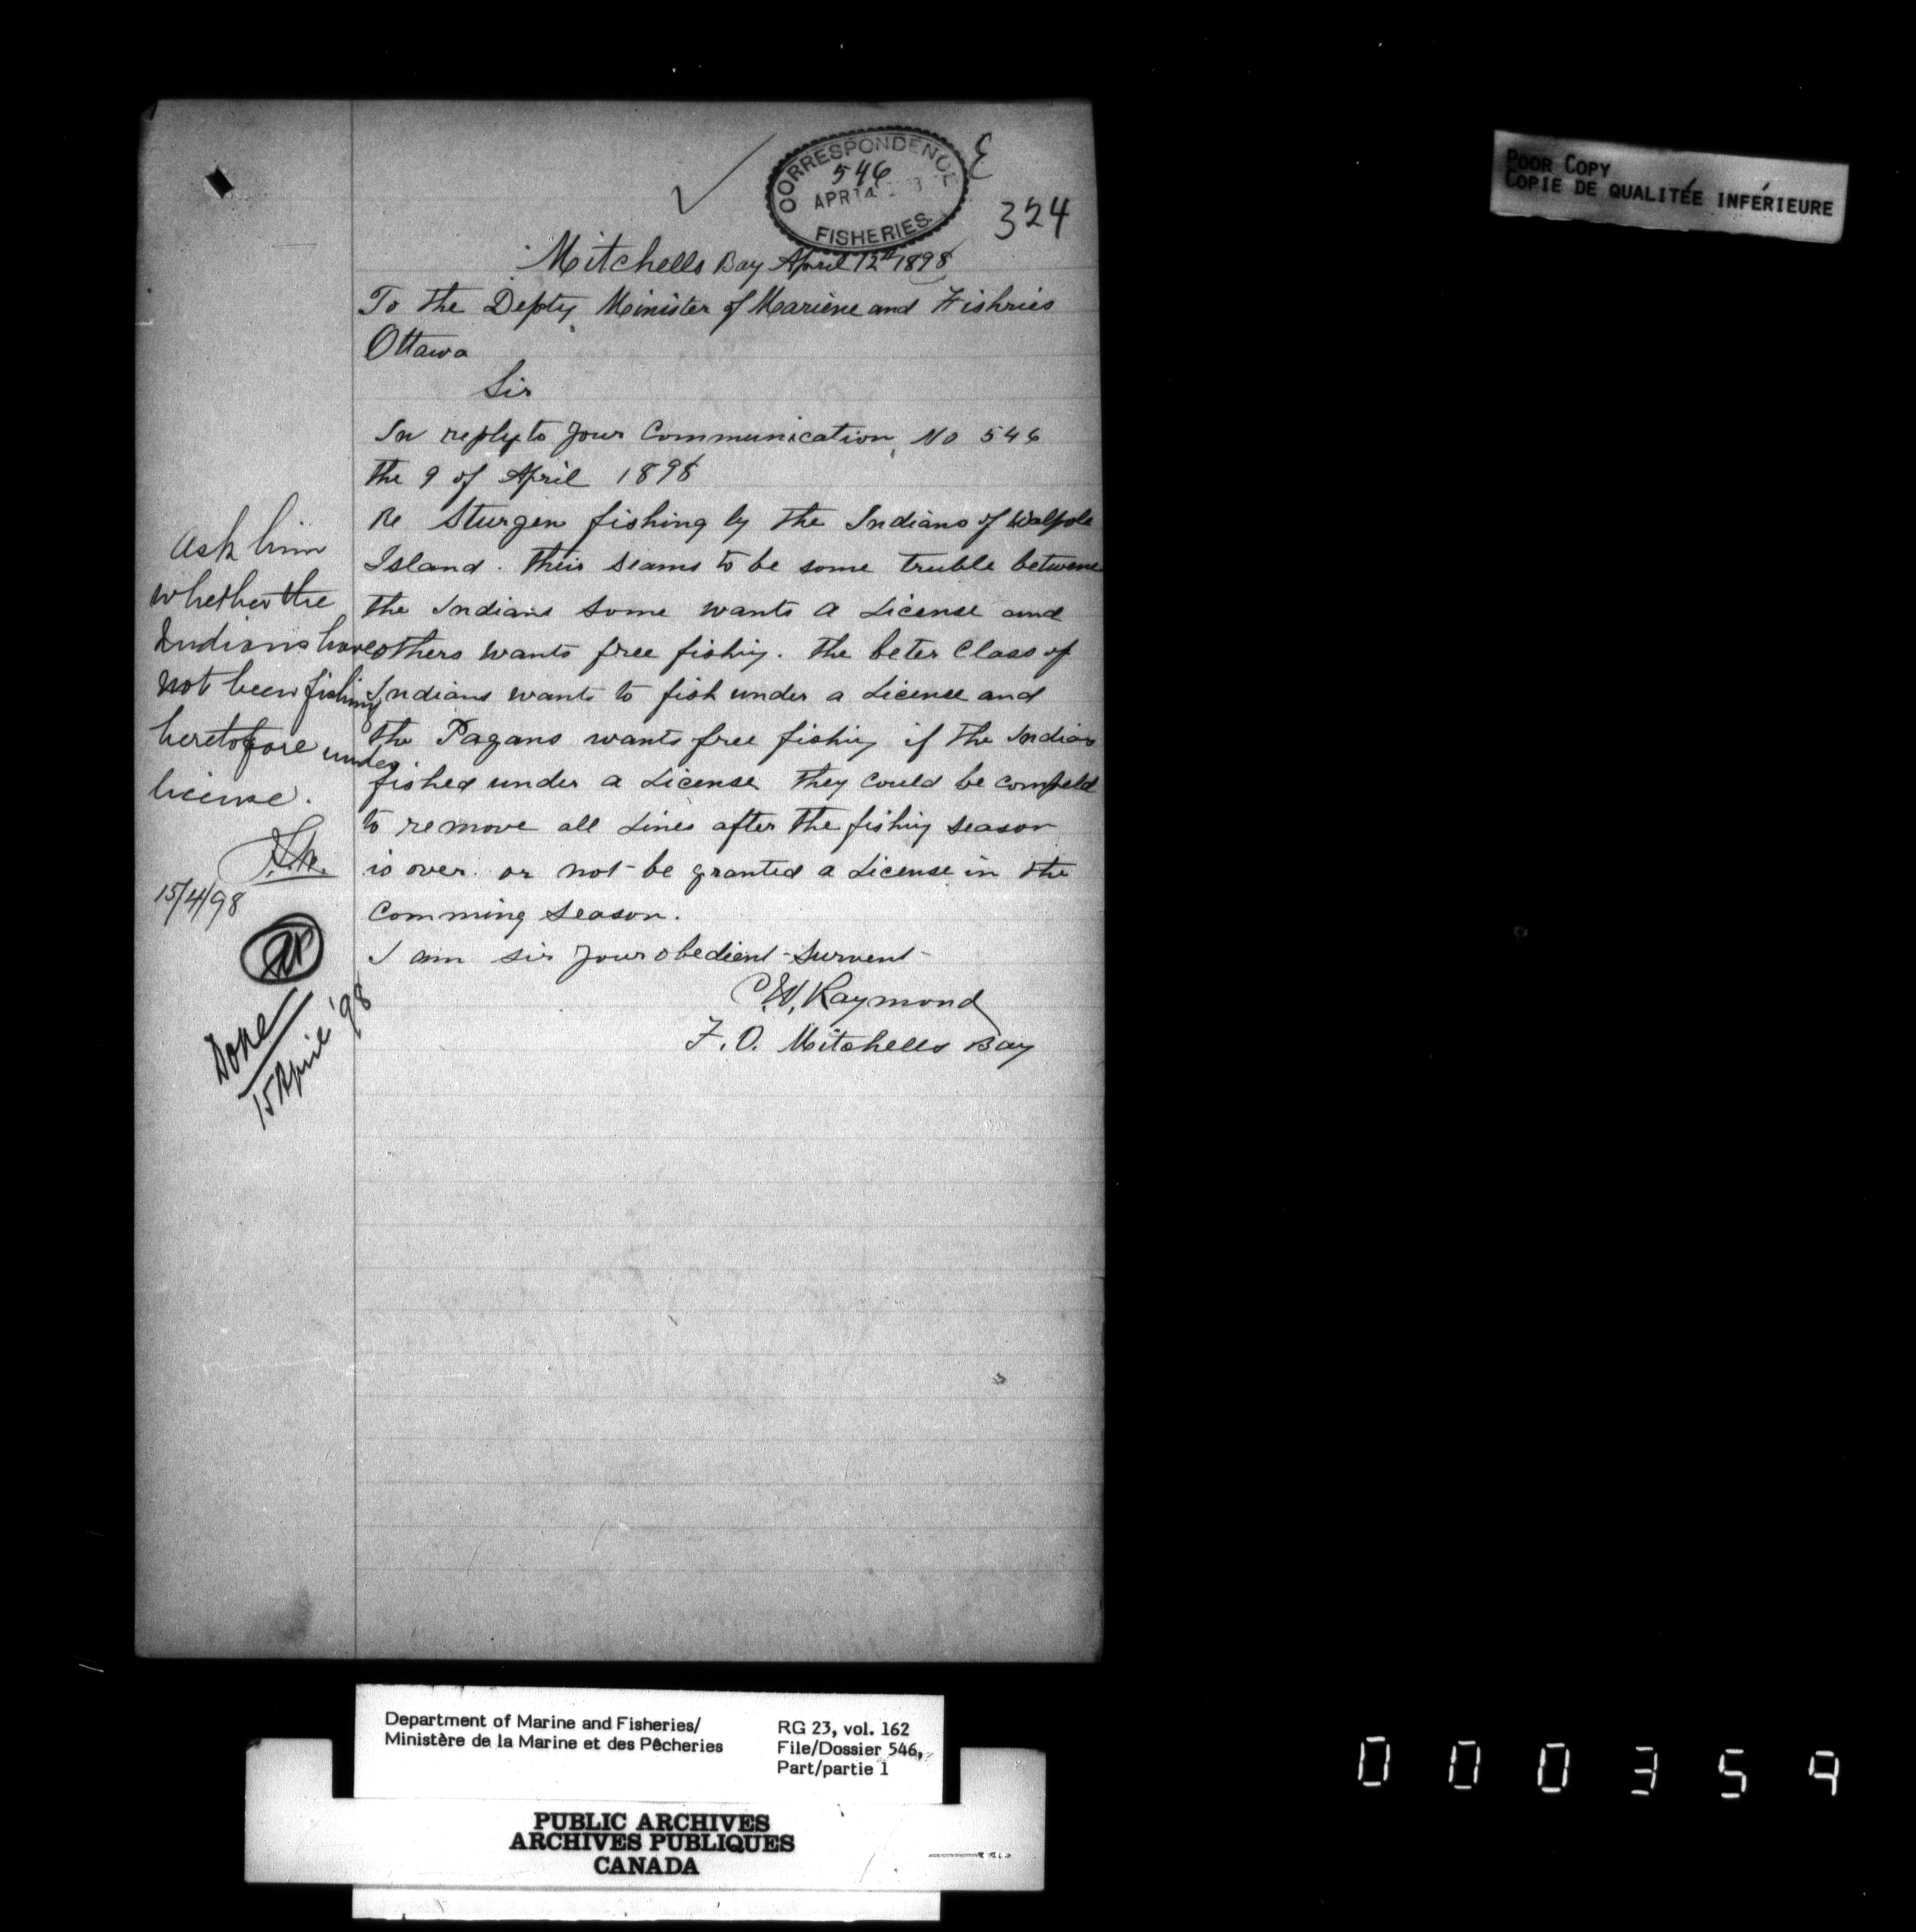 CORRESPONDENCE
546
APR 14
FISHERIES
E
324
POOR COPY
COPIE DE QUALITÉE INFÉRIEURE
Mitchells Bay April 12th 1898
To the Depty Minister of Mariene and Fishries
Ottawa
Sir
In reply to your Communication No 546
the 9 of April 1898
Re Sturgen fishing by the Indians of Walpole
Island. Their seams to be some truble betwene
the Indians some wants a License and
others wants free fishing. The beter Class of
Indians wants to fish under a License and
the Pagans wants free fishing if the Indian
fished under a License they could be compeld
to remove all Lines after the fishing season
is over. or not be granted a License in the
Comming season.
I am sir your obedient survent
C.W. Raymond
F. O. Mitchells Bay
Ask him
whether the
Indians have
not been fishing
heretofore under
license.
15/4/98
Done
15 April '98
Department of Marine and Fisheries/
Ministère de la Marine et des Pêcheries
RG 23, vol. 162
File/Dossier 546,
Part/partie 1
PUBLIC ARCHIVES
ARCHIVES PUBLIQUES
CANADA
000359